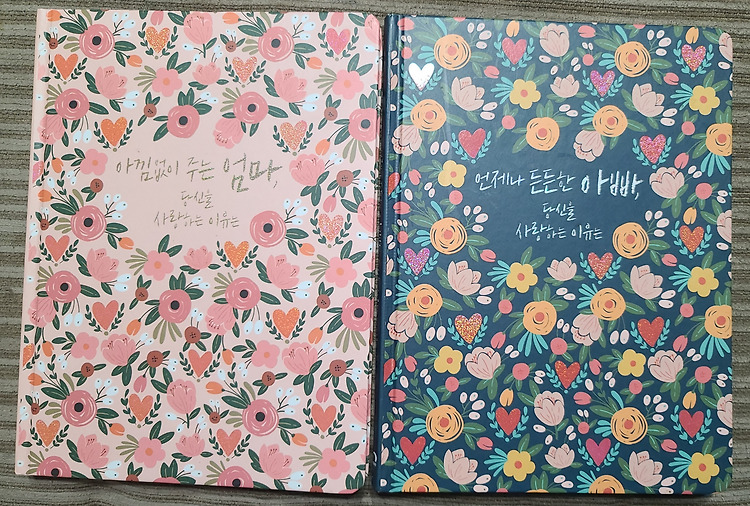 아낌없이 주는 엄마,
당신을
사랑하는 이유는
언제나 든든한 아빠,
당신을
사랑하는 이유는